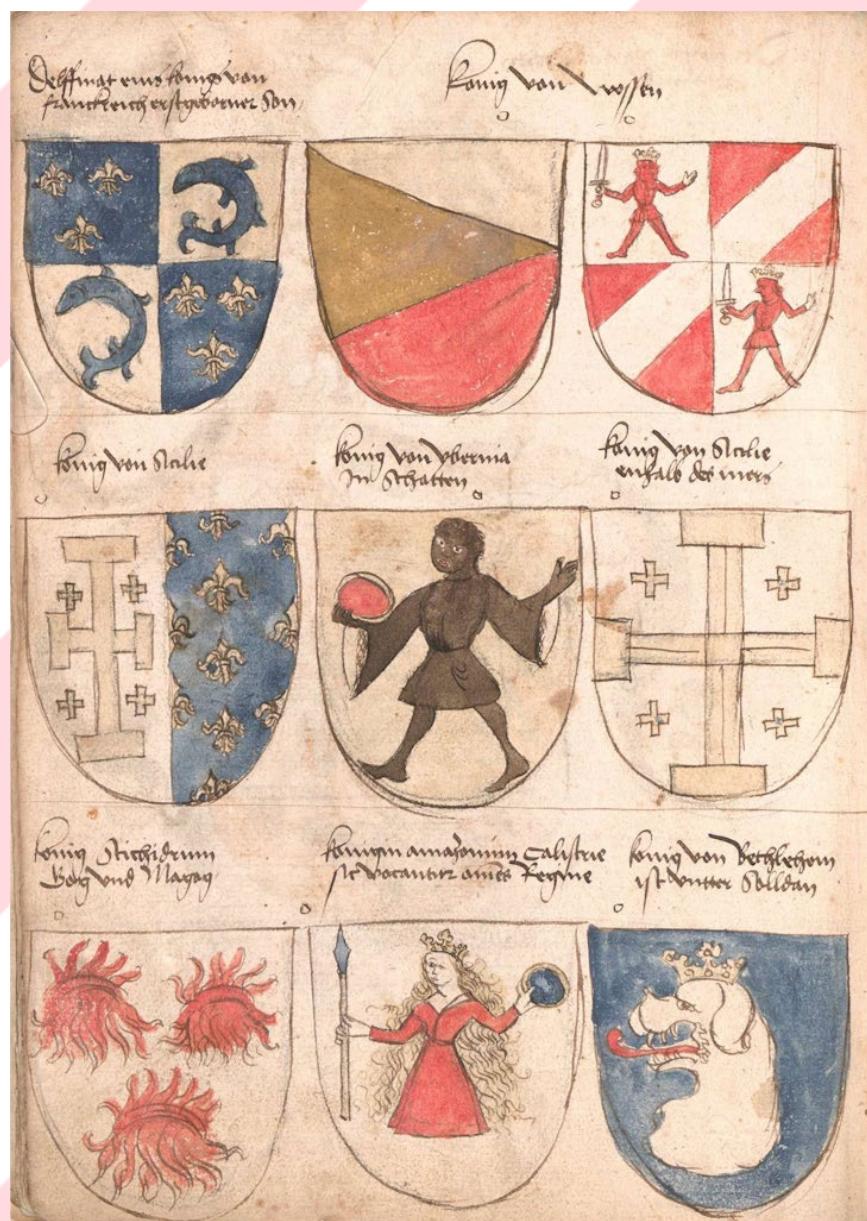 Delffinat eins konigs von
franckreich erstgeborner Son
konig von
konig von Sicilie
konig von ybernia
In Schotten
konig von Sicilie
enhalb des mers
konig
Gog und Magog
konigin amazonum Calistrie
sic vocantur omnes Regine
konig von Bethlehem
ist unter Solldan